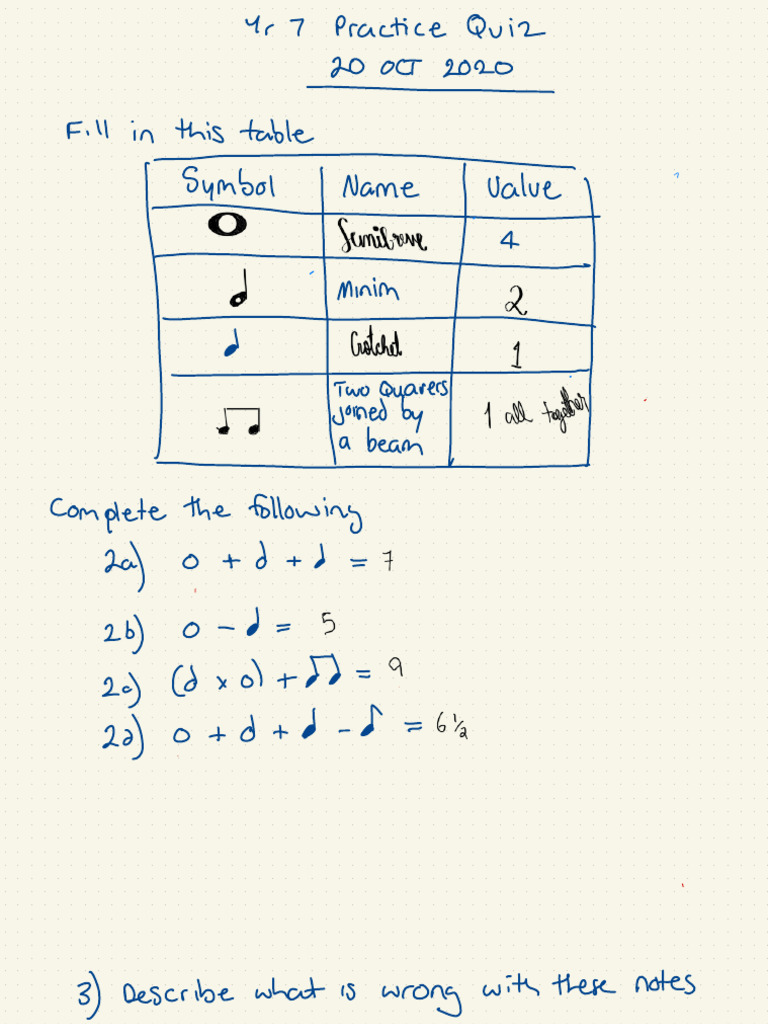 Yr 7 Practice Quiz
20 OCT 2020
Fill in this table
Symbol Name Value
Semibreve 4
Minim 2
Crotchet 1
Two Quavers
joined by
a beam
1 all together
Complete the following
2a) o + 𝅗𝅥 + ♩ = 7
2b) o - ♩ = 5
2c) (𝅗𝅥 x o) + ♫ = 9
2d) o + 𝅗𝅥 + ♩ - ♪ = 6 1/2
3) Describe what is wrong with these notes